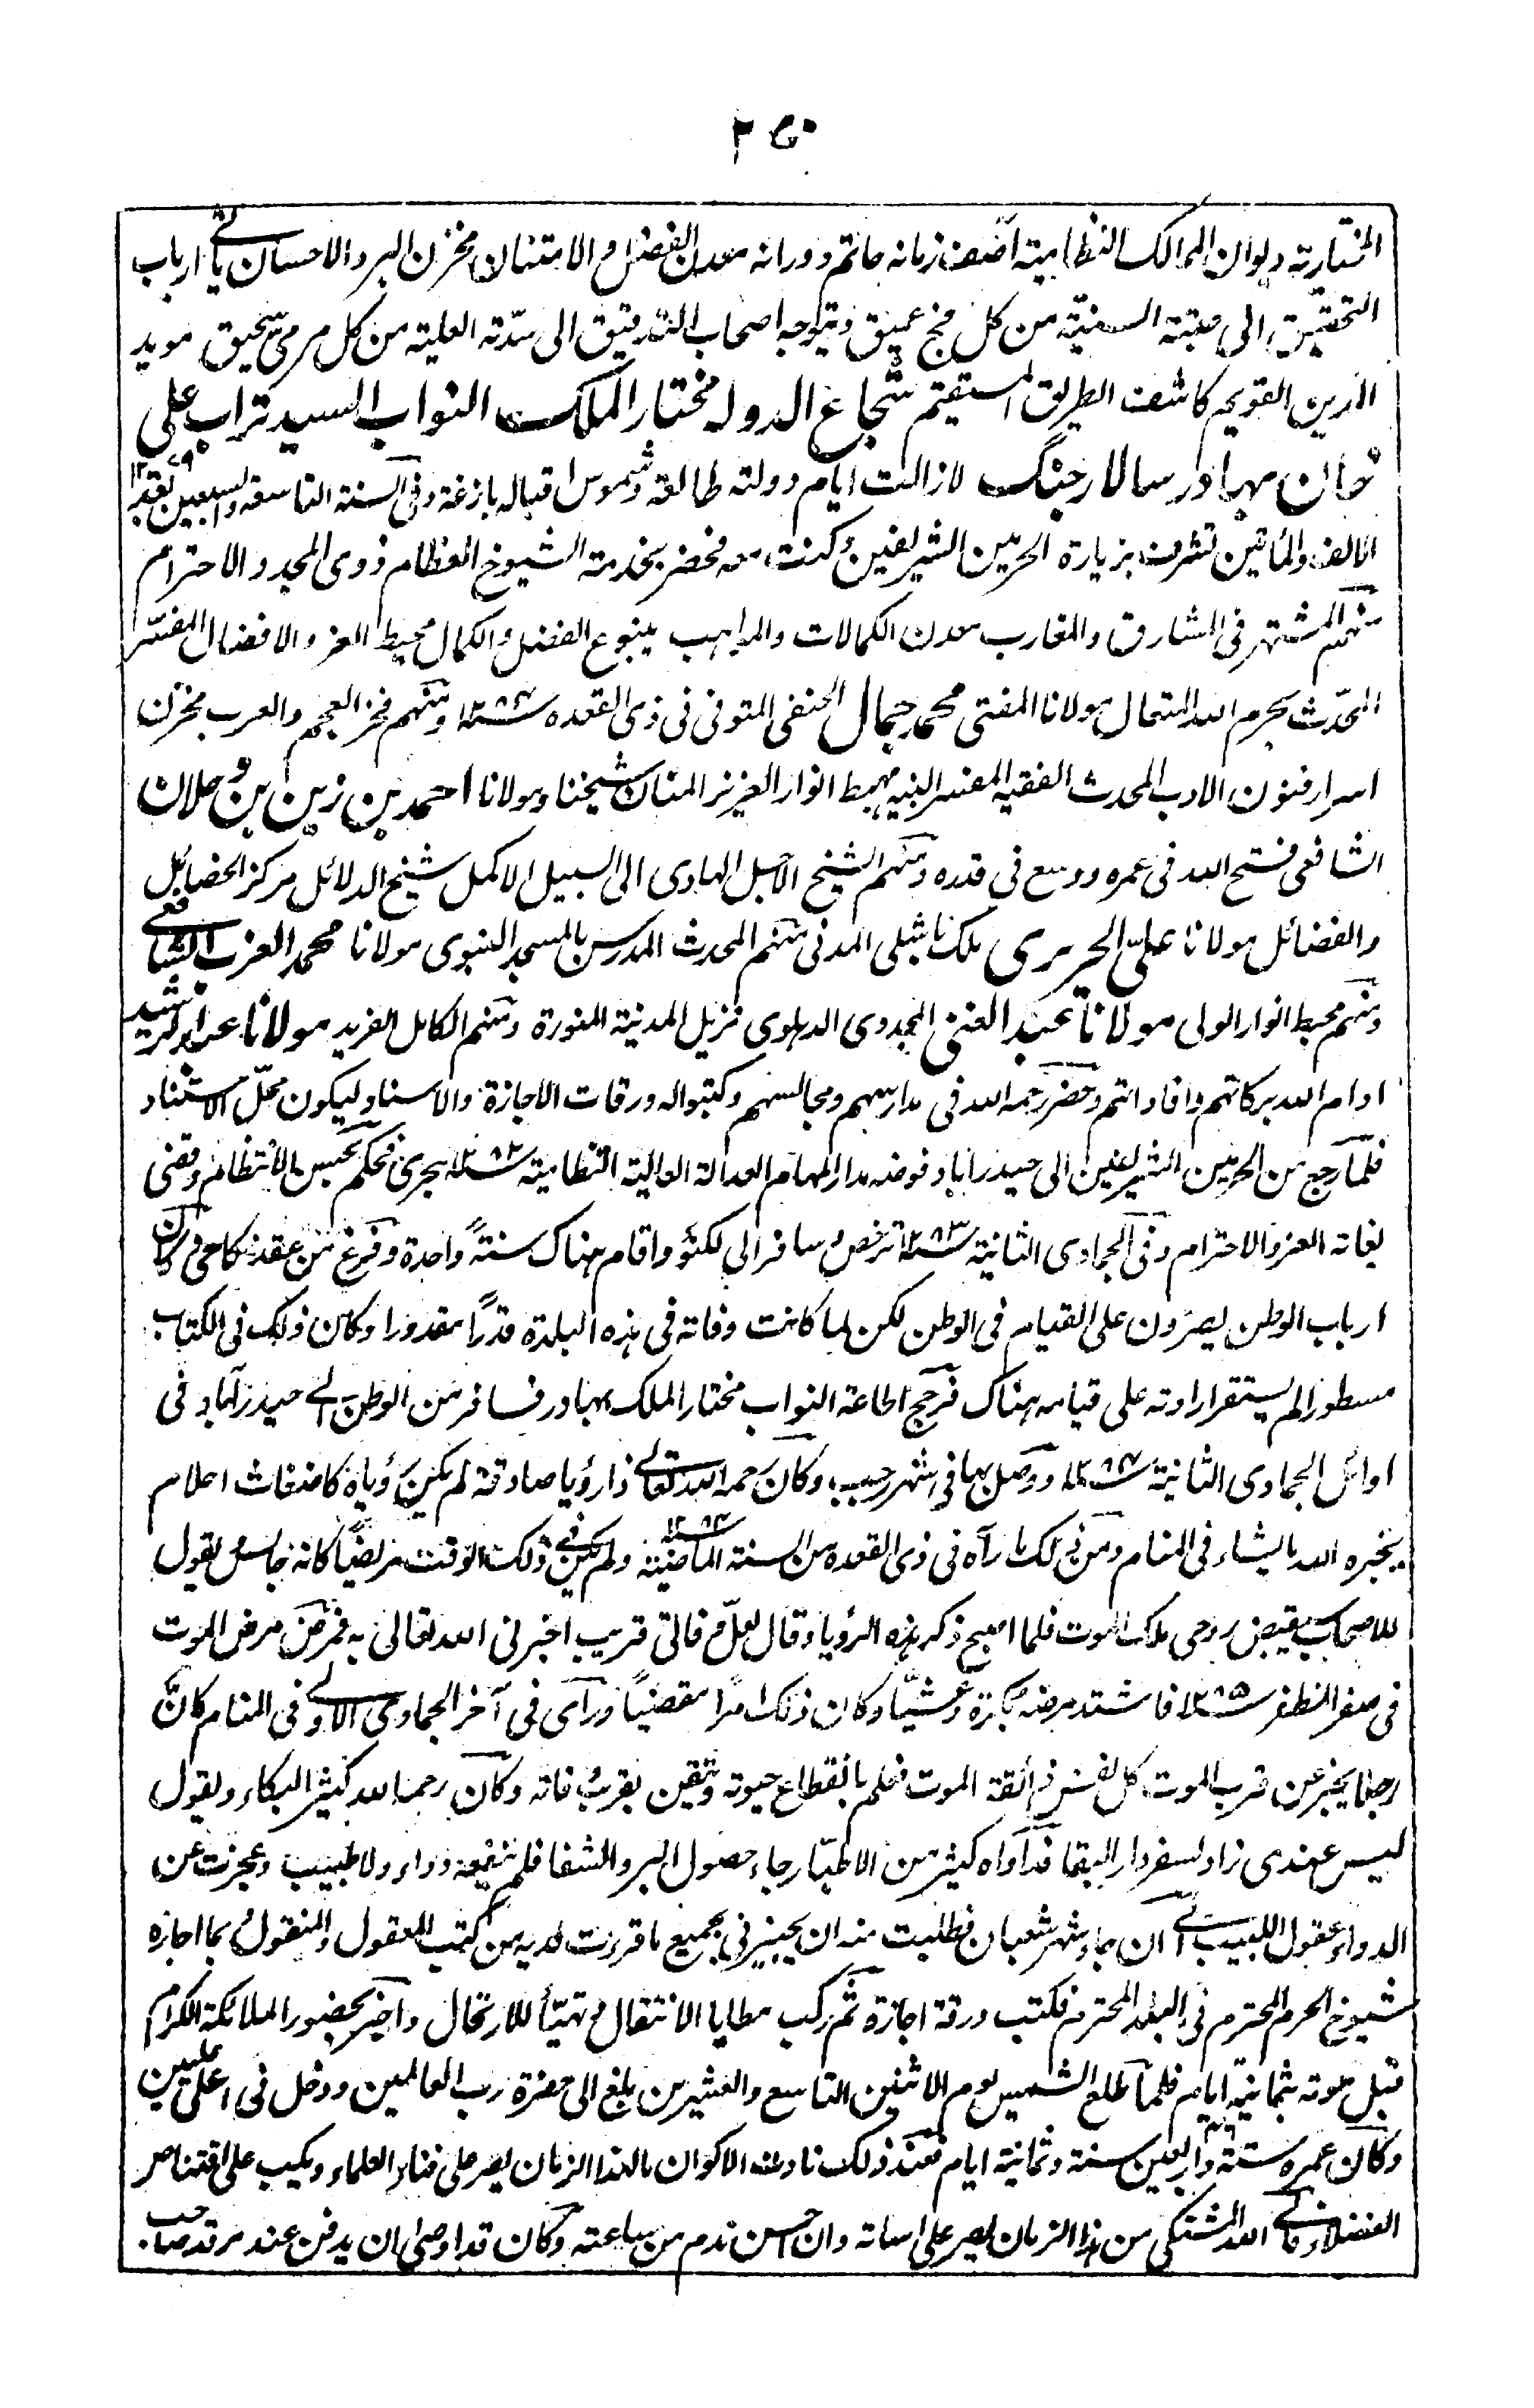 ٢٥٠
المختارية ديوان الممالك النظامية آصف زمانه حاتم دورانه معدن الفضل والامتنان مخزن البر والاحسان ياتى ارباب
التحقيق الى عتبته السنية من كل فج عميق ويتوجه اصحاب التدقيق الى سدّته العلية من كل مرمى سحيق مويد
الدين القويم كاشف الطريق المستقيم شجاع الدوله مختار الملك النواب السيد تراب على
خان بهادر سالار جنگ لازالت ايام دولته طالعة وشموس اقباله بازغة وفى السنة التاسعة والسبعين بعد ١٢٧٩
الالف والمأتين تشرف بزيارة الحرمين الشريفين وكنت معه فحضر بخدمة الشيوخ العظام ذوى المجد والاحترام
منهم المشتهر فى المشارق والمغارب معدن الكمالات والمواهب ينبوع الفضل والكمال محيط العز والافضال المفسّر
المحدّث بحرم الله المتعال مولانا المفتى محمد جمال الحنفى المتوفى فى ذى القعده سنه ١٢٨٤ ومنهم فخر العجم والعرب مخزن
اسرار فنون الادب المحدث الفقيه المفسر النبيه مهبط انوار العزيز المنان شيخنا ومولانا احمد بن زين بن دحلان
الشافعى فسح الله فى عمره ووسع فى قدره ومنهم الشيخ الاجل الهادى الى السبيل الاكمل شيخ الدلائل مركز الخصائل
والفضائل مولانا علىّ الحريرى ملك باشلى المدنى منهم المحدث المدرس بالمسجد النبوى مولانا محمد العزب الشافعى
ومنهم محيط انوار الولى مولانا عبد الغنى المجددى الدهلوى نزيل المدينة المنورة ومنهم الكامل الفريد مولانا عبد الرشيد
ادام الله بركاتهم وافاداتهم وحضر رحمه الله فى مدارسهم ومجالسهم وكتبوا له ورقات الاجازة والاسناد ليكون محلّ الاستناد
فلمّا رجع من الحرمين الشريفين الى حيدر اباد فوضه مدار المهام العدالة العالية النظامية سنه ١٢٨٢ هجرى فحكم بحسن الانتظام وقضى
بغاته العز والاحترام وفى الجمادى الثانية سنه ١٢٨٣ ترخص وسافر الى لكنؤ واقام هناك سنةً واحدة وفرغ من عقد نكاحى وكان
ارباب الوطن يصرّون على القيام فى الوطن لكن لما كانت وفاته فى هذه البلدة قدرًا مقدورا وكان ذلك فى الكتاب
مسطورا لم يستقر ارادته على قيامه هناك فرجح اطاعة النواب مختار الملك بهادر فسافر من الوطن الى حيدر آباد فى
اوائل الجمادى الثانية سنه ١٢٨٤ ووصل بها فى شهر رجب وكان رحمه الله تعالى ذا رؤيا صادقة لم يكن رؤياه كاضغاث احلام
يخبره الله بما يشاء فى المنام ومن ذلك ما رآه فى ذى القعده من السنة الماضية سنه ١٢٨٤ ولم يكن فى ذلك الوقت مريضًا كانه جالس يقول
للاصحاب سيقبض روحى ملك الموت فلما اصبح ذكر هذه الرؤيا وقال لعلّ وفاتى قريب اخبرنى الله تعالى به فمرض مرض الموت
فى صفر المظفر سنه ١٢٨٥ فاشتد مرضه بكرة وعشيّا وكان ذلك امرًا مقضيًا وراى فى آخر الجمادى الاولى فى المنام كانّ
رجلا يخبر عن قرب الموت كل نفس ذائقة الموت فعلم بانقطاع حيوته وتيقن بقرب وفاته وكان رحمه الله كثير البكاء ويقول
ليس عندى زاد لسفر دار البقا فداواه كثير من الاطبّا رجاء حصول البر والشفا فلم تنفعه دواء ولا طبيب وعجزت عن
الدواء عقول اللبيب الى ان جاء شهر شعبان فطلبت منه ان يجيزنى بجميع ما قررت لديه من كتب المعقول والمنقول بما اجازه
شيوخ الحرم المحترم فى البلد المحترم فكتب ورقة اجازة ثم ركب مطايا الانتقال وتهيّأ للارتحال واخبر بحضور الملائكة الكرام
قبل موته بثمانية ايام فلما طلع الشمس يوم الاثنين التاسع والعشرين بلغ الى حضرة رب العالمين ودخل فى اعلى عليين
وكان عمره ستة واربعين سنة وثمانية ايام فعند ذلك نادى الاكوان ما لهذا الزمان يصر على فناء العلماء ويكب على اقتناص
الفضلاء والى الله المشتكى من هذا الزمان يصر على اساته وان احسن ندم من ساعته وكان قد اوصى ان يدفن عند مرقد صاحب